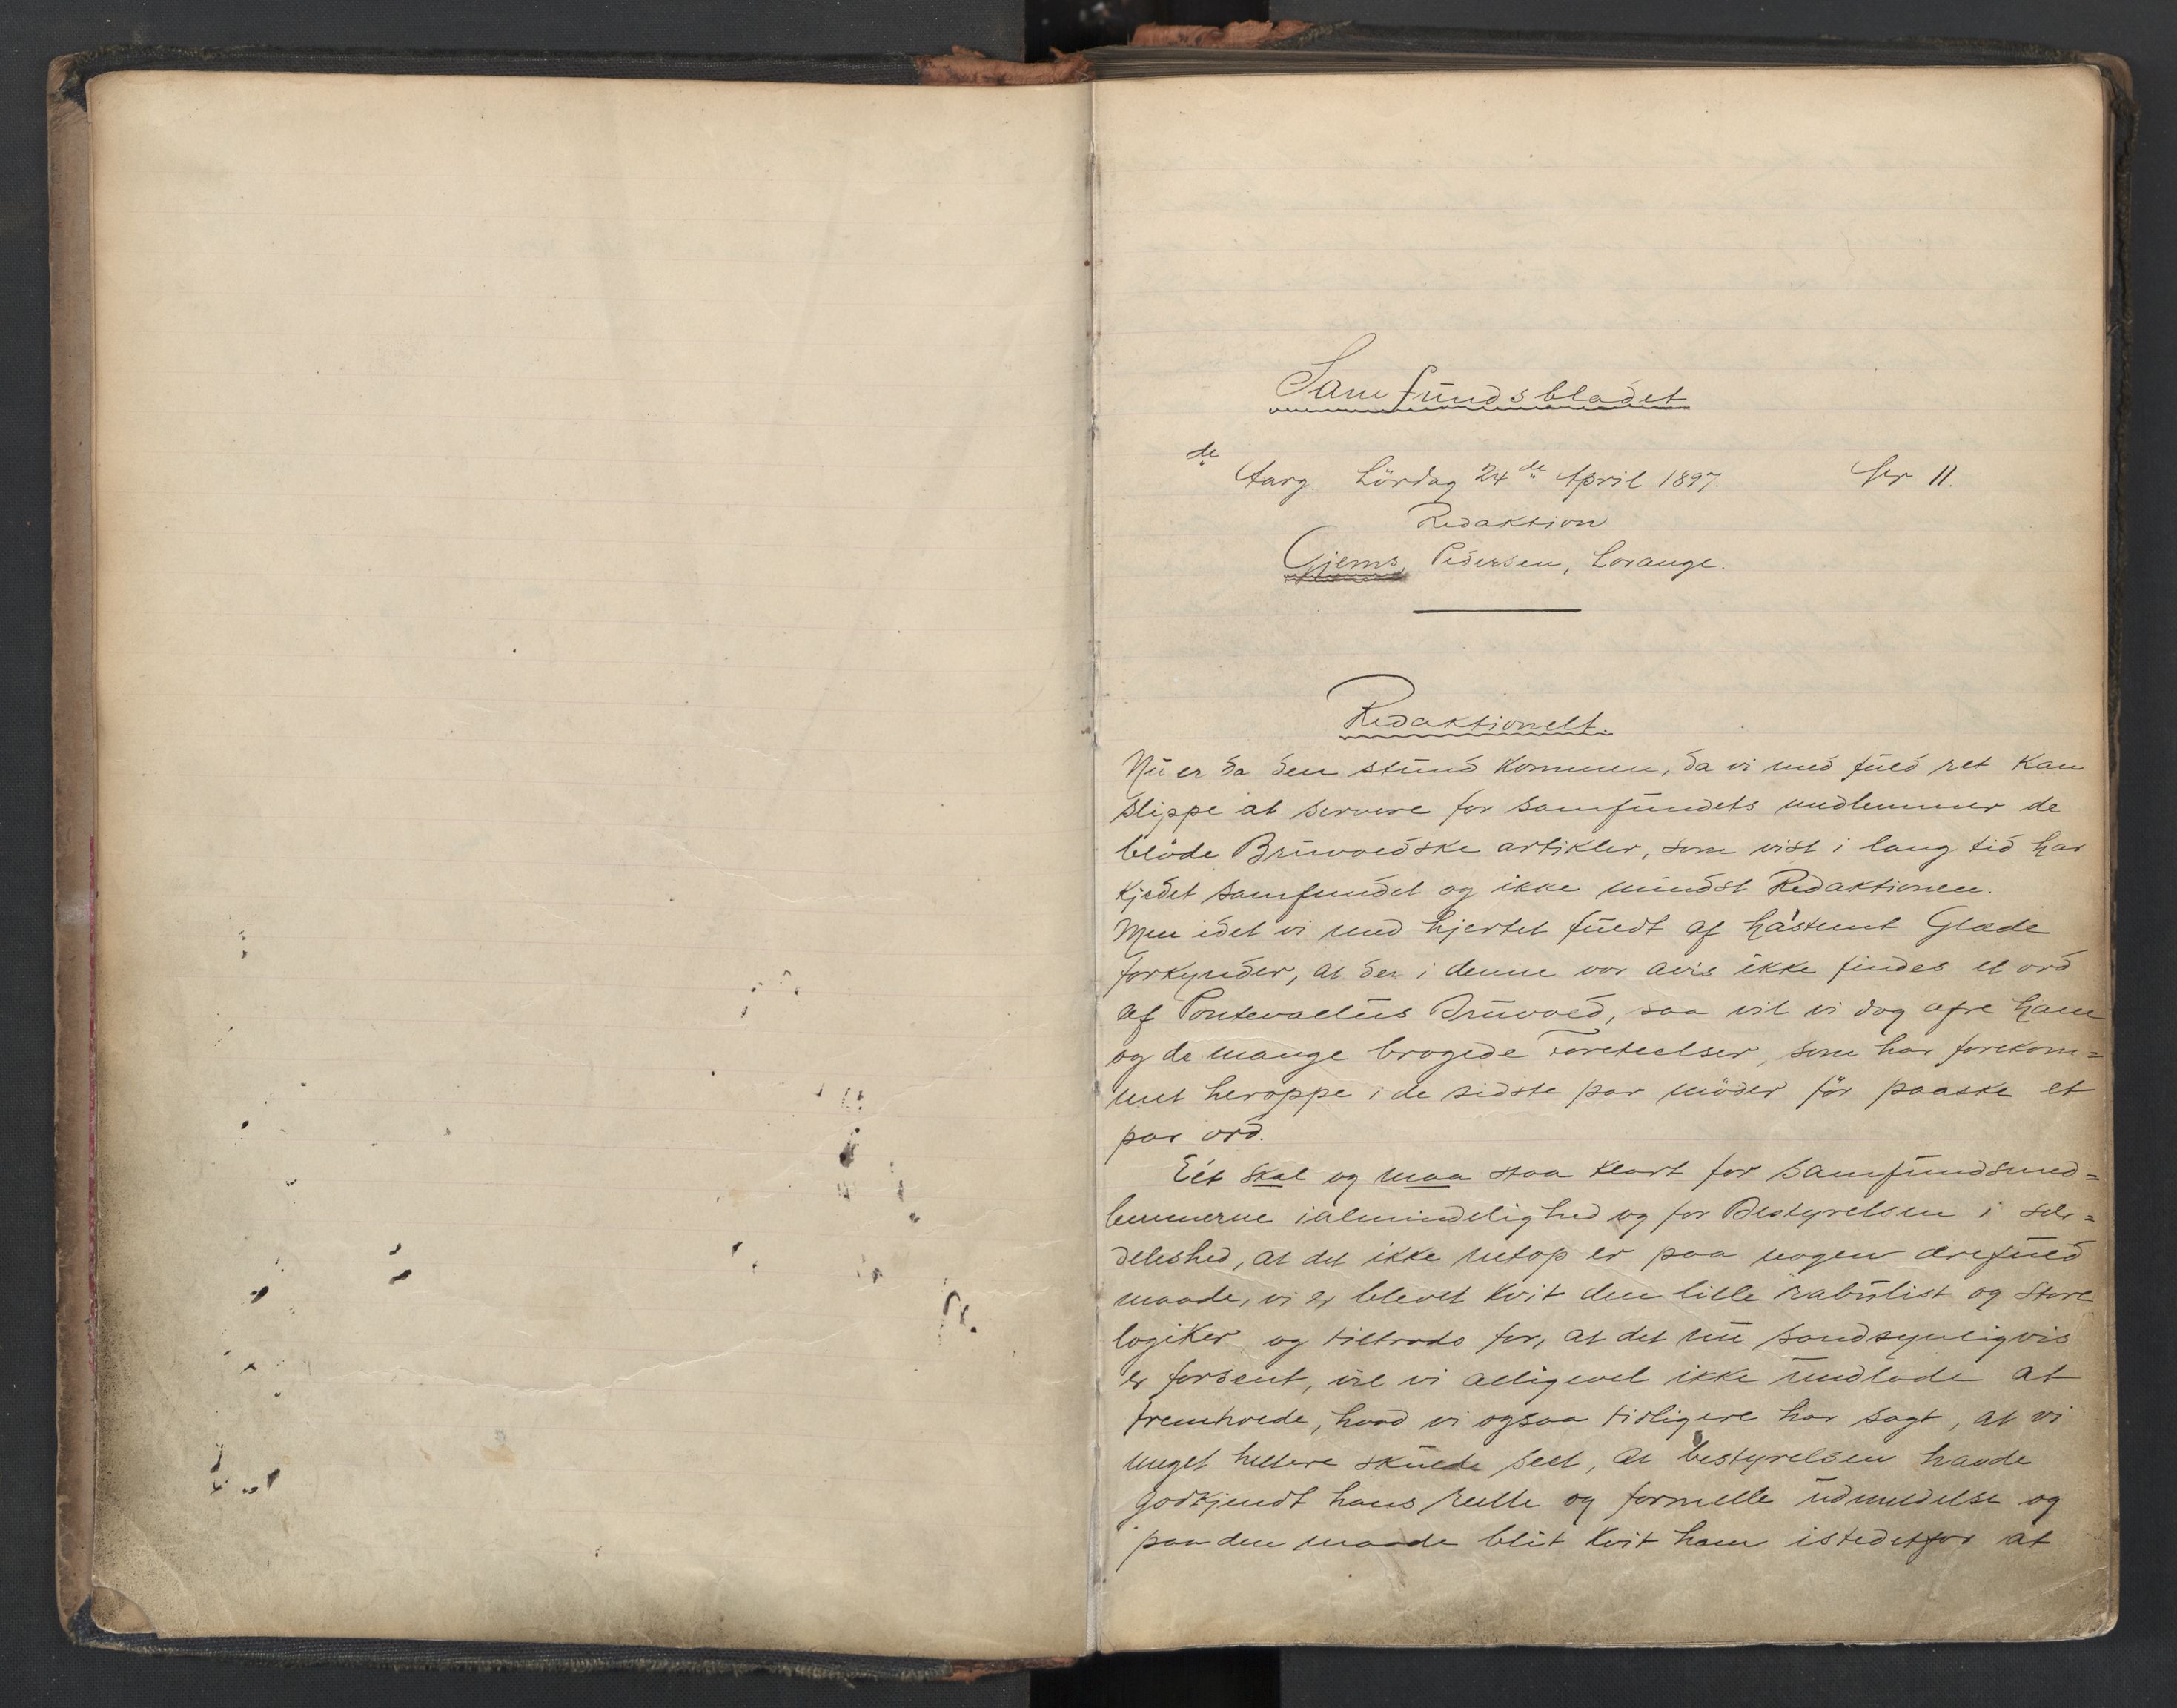 Samfundsbladet
de
Aarg. Lördag 24de April 1897. Nr 11.
Redaktion
Gjems, Pedersen, Lorange.
Redaktionelt.
Nu er da den stund kommen, da vi med fuld ret kan
slippe at servere for samfundets medlemmer de
blöde Bruvoldske artikler, som vist i lang tid har
kjedet samfundet og ikke mindst Redaktionen.
Men idet vi med hjertet fuldt af Glæde
forkynder, at der i denne vor avis ikke findes et ord
af Bruvold, saa vil vi dog ofre ham
og de mange brogede Foreteelser, som har forekom=
met heroppe i de sidste par möder för paaske et
par ord.
Eét skal og maa staa klart for samfundsmed=
lemmerne ialmindelighed og for Bestyrelsen i sær=
deleshed, at det ikke netop er paa nogen ærefuld
maade, vi er blevet kvit den lille rabulist og store
logiker og tiltrods for, at det nu sandsynligvis
er forsent, vil vi alligevel ikke undlade at
fremhæve, hvad vi ogsaa tidligere har sagt, at vi
meget hellere skulde seet, at bestyrelsen havde
godkjendt hans reelle og formelle udmeldelse og
paa den maade blit kvit ham istedetfor at